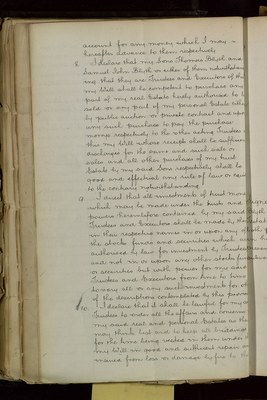 account for any money which I may
hereafter advance to them respectively
8 I declare that my Sons Thomas Blyth and
Samuel John Blyth or either of them notwithstand
ing that they are Trustees and Executors of this
my Will shall be competent to purchase any
part of my real Estate hereby authorized to be
sold or any part of my personal Estate either
by public auction or private contract and upon
any such purchase to pay the purchase
moneys respectively to the other acting Trustees
this my Will whose receipts shall be sufficient
discharges for the same and such sale
sales and all other purchases of my said
Estate by my said Sons respectively shall be
good and effectual any rule of law or equity
to the contrary notwithstanding
9 I direct that all investments of trust money
which may be made under the trusts and
powers hereinbefore contained by my said
Trustees and Executors shall be made by them
in their respective names in or upon any
the stocks funds and securities which are
authorised by law for investment by Trustees
and not in or upon any other stocks funds
or securities but with power for my said
Trustees and Executors from time to time
to vary all or any such investments for others
of the descriptions contemplated by this power
10 I declare that it shall be lawful for my
Trustees to order all the affairs and concerns
my said real and personal Estates as they
may think best and to have all buildings
for the time being vested in them under
my Will in good and sufficient repair
insured from loss or damage by fire to the